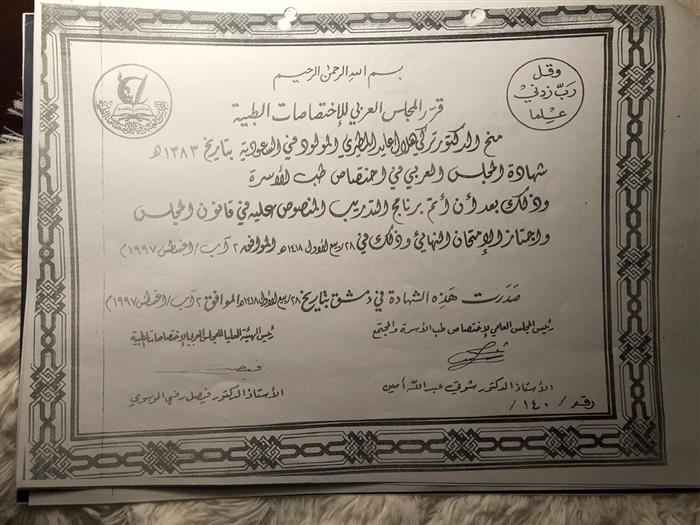 بسم الله الرحمن الرحيم
وقل
رب زدني
علما
قرر المجلس العربي للإختصاصات الطبية
منح الدكتور تركي هلال عايد المطيري المولود في السعودية بتاريخ ١٣٨٣ هـ
شهادة المجلس العربي في اختصاص طب الأسرة
وذلك بعد أن أتم برنامج التدريب المنصوص عليه في قانون المجلس
واجتاز الإمتحان النهائي وذلك في ٢٨/ربيع الأول/١٤١٨ هـ الموافق ٢ آب/أغسطس ١٩٩٧م
صدرت هذه الشهادة في دمشق بتاريخ ٢٨/ربيع الأول/١٤١٨ هـ الموافق ٢ آب/أغسطس ١٩٩٧م
رئيس المجلس العلمي لإختصاص طب الأسرة والمجتمع
رئيس الهيئة العليا للمجلس العربي للإختصاصات الطبية
الأستاذ الدكتور شوقي عبد الله أمين
الأستاذ الدكتور فيصل رضي الموسوي
رقم / ١٤٠ /